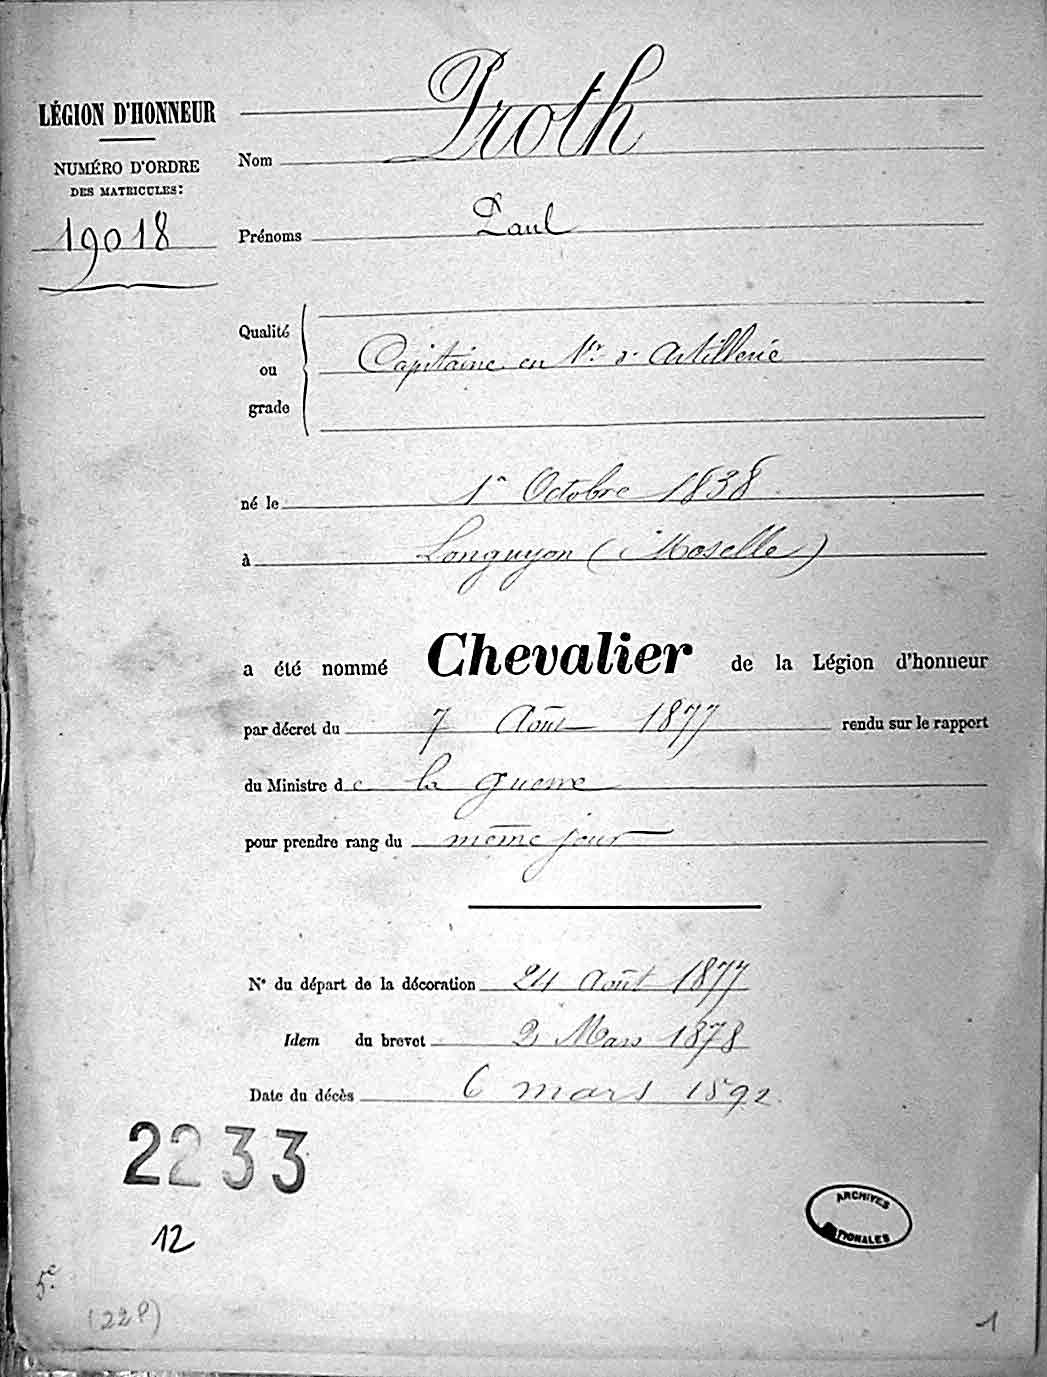 LÉGION D'HONNEUR
NUMÉRO D'ORDRE
DES MATRICULES:
19018
Nom Proth
Prénoms Paul
Qualité
ou
grade
Capitaine en 1er d'Artillerie
né le 1er Octobre 1838
à Longuyon (Moselle)
a été nommé Chevalier de la Légion d'honneur
par décret du 7 Août 1877 rendu sur le rapport
du Ministre de la guerre
pour prendre rang du même jour
N° du départ de la décoration 24 Août 1877
Idem du brevet 2 Mars 1878
Date du décès 6 mars 1892.
2233
12
5e
(22P)
1
ARCHIVES
NATIONALES